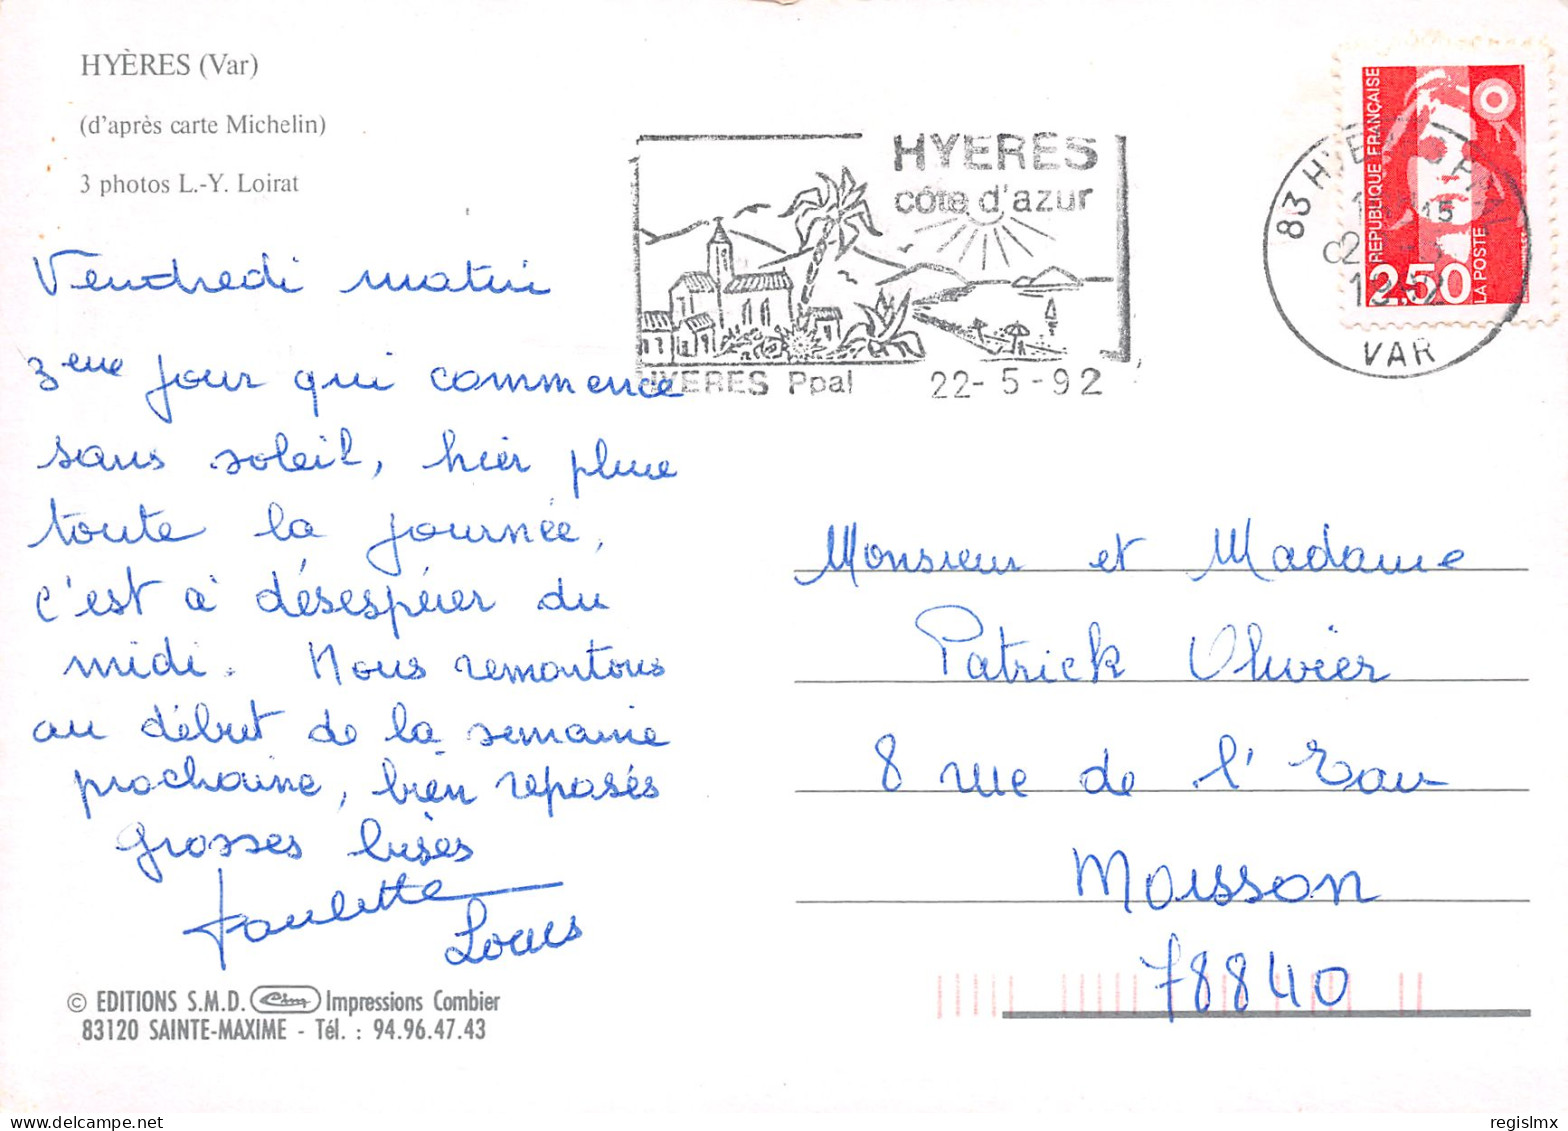 HYÈRES (Var)
(d'après carte Michelin)
3 photos L.-Y. Loirat
Vendredi matin
3eme jour qui commence
sans soleil, hier pluie
toute la journée,
c'est à désespérer du
midi. Nous remontons
au début de la semaine
prochaine, bien reposés
Grosses bises
Paulette
Louis
© EDITIONS S.M.D. Cim Impressions Combier
83120 SAINTE-MAXIME - Tél. : 94.96.47.43
HYERES
côte d'azur
HYERES Ppal 22-5-92
83 HYERES PPAL
VAR
REPUBLIQUE FRANÇAISE
2,50
LA POSTE
Monsieur et Madame
Patrick Olivier
8 rue de l'Eau
Moisson
78840
regislmx